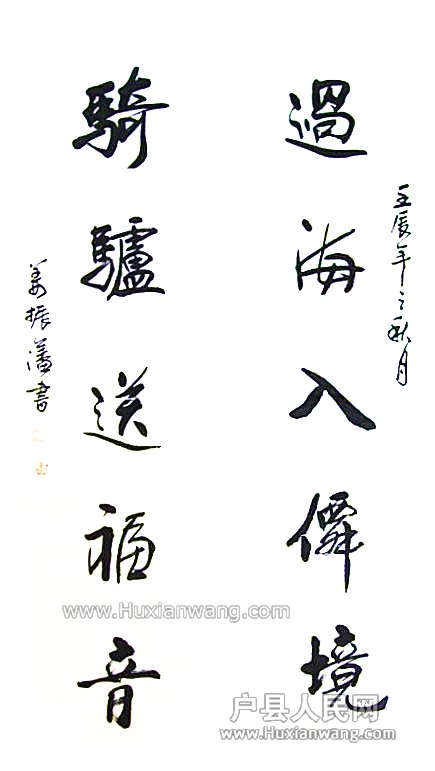 壬辰年之秋月
過海入僊境
騎驢送福音
姜振藩書
www.Huxianwang.com
户县人民网
www.Huxianwang.com